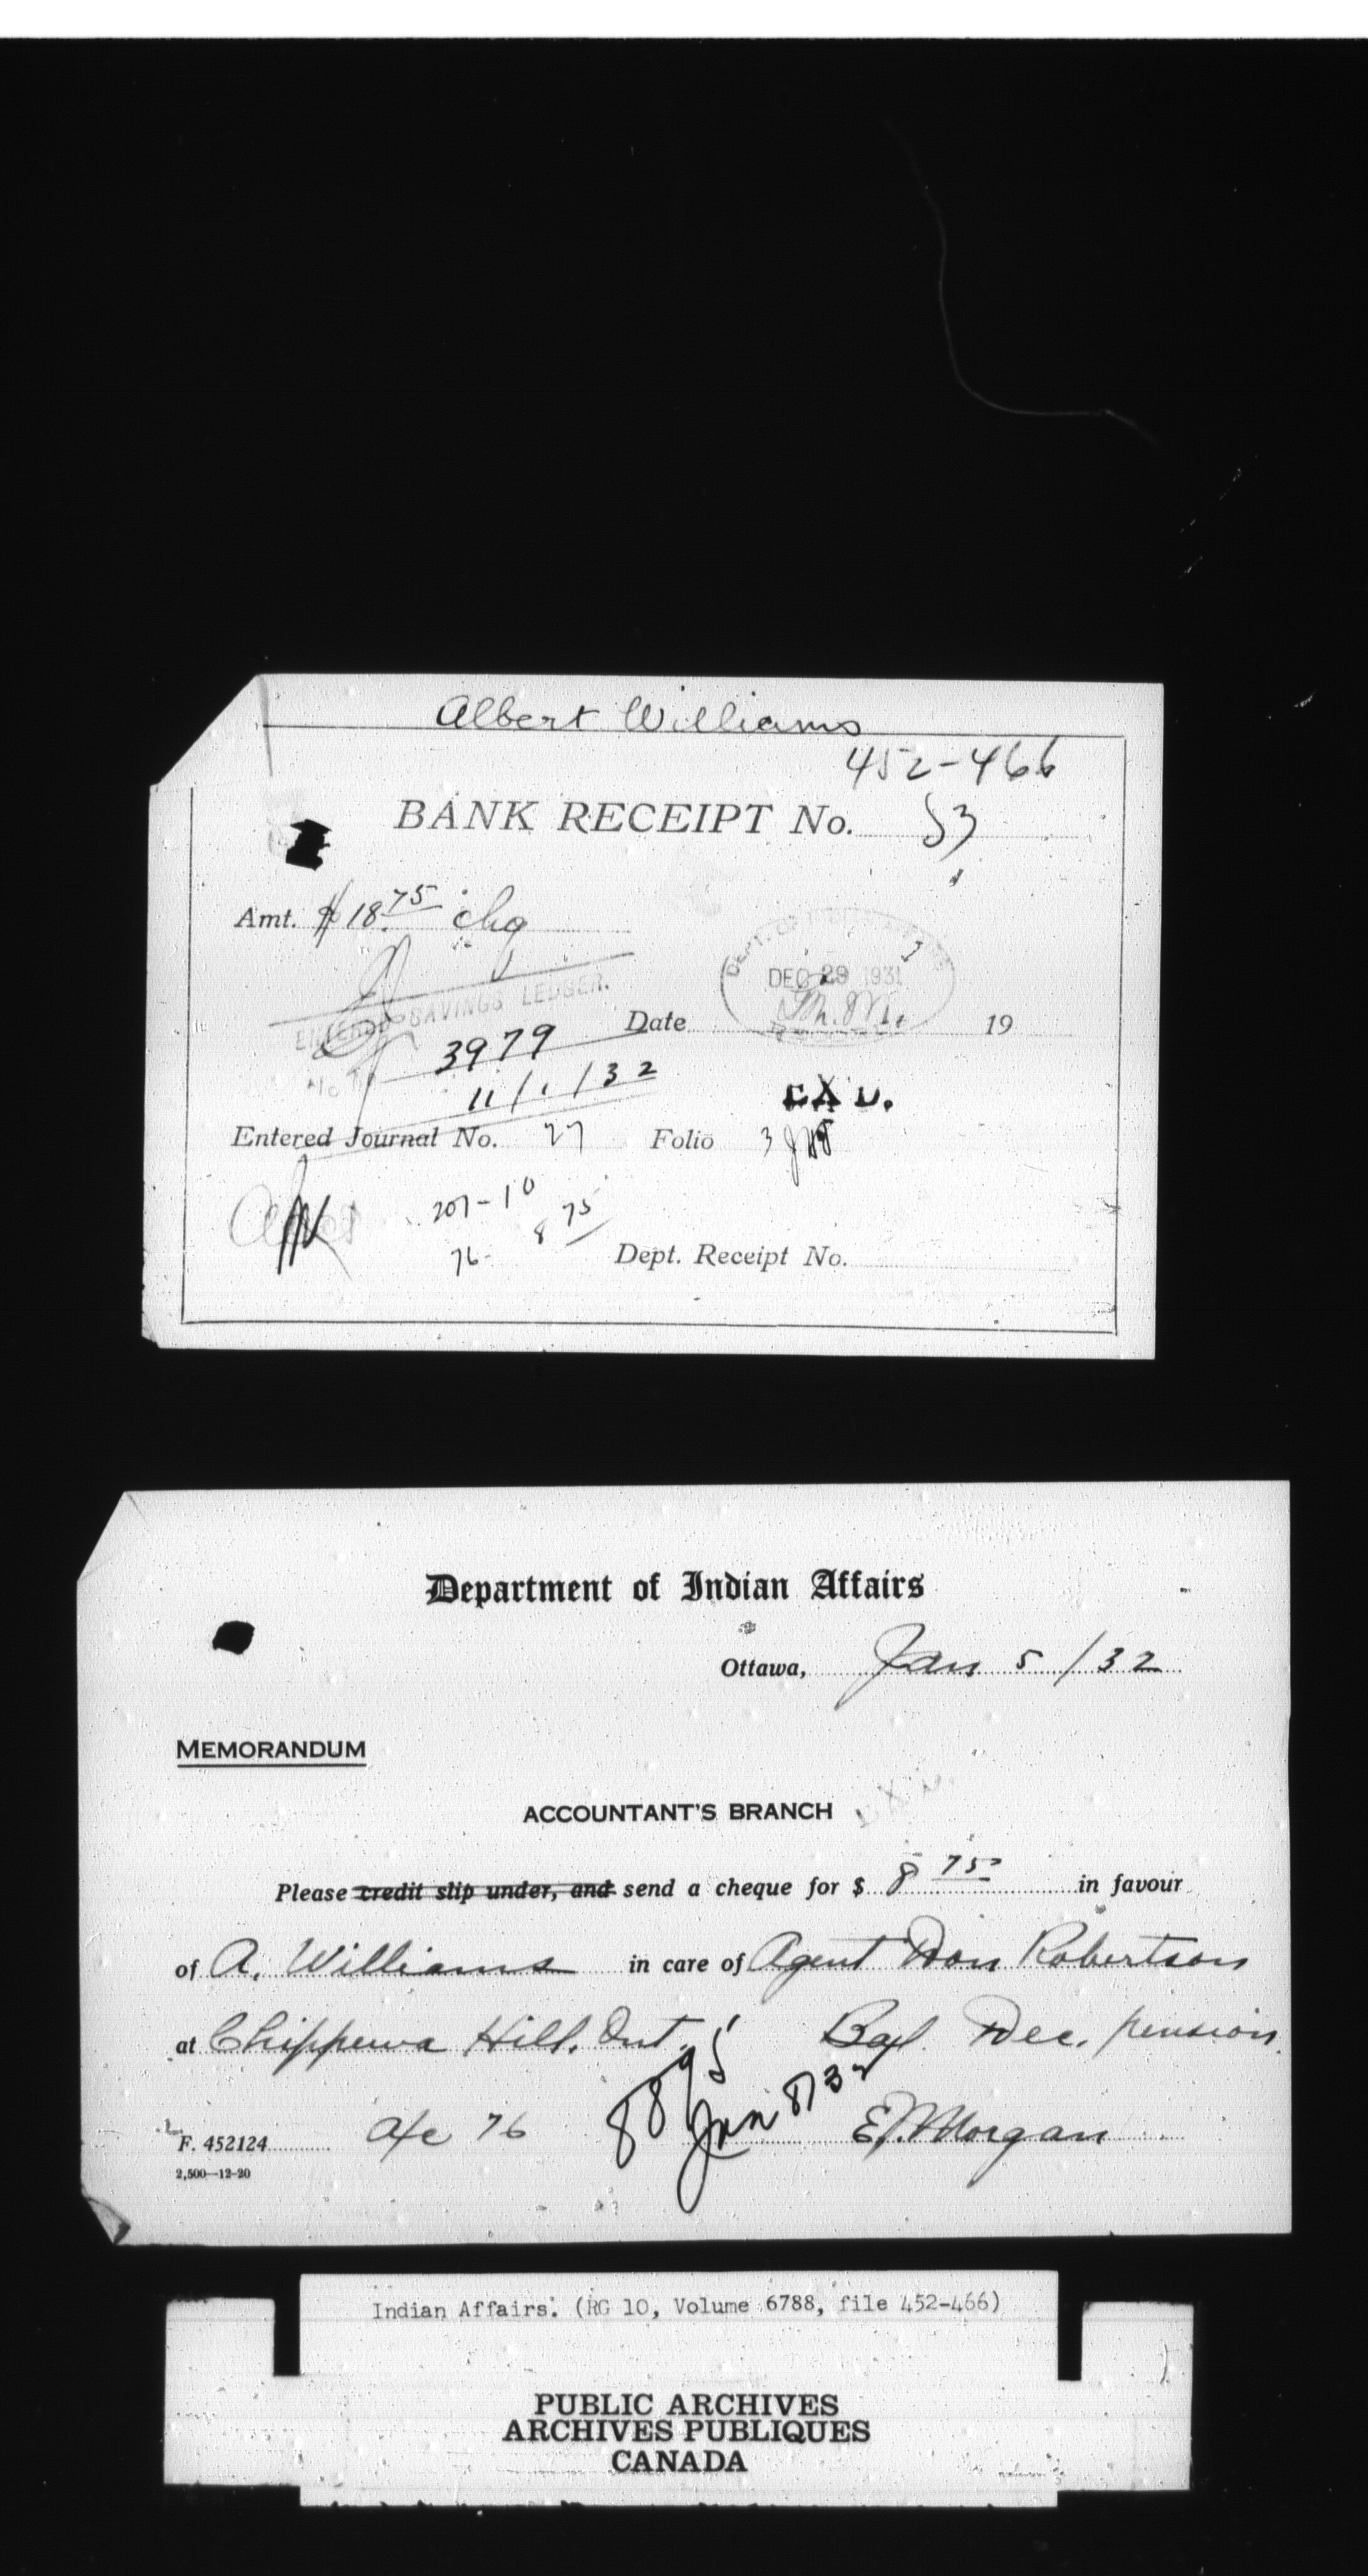 Albert Williams
452-466
BANK RECEIPT No. 53
Amt. $18.75 chq
DEPT. OF INDIAN AFFAIRS
DEC 29 1931
ENTERED SAVINGS LEDGER.
Date 19
3979
11/1/32
Entered Journal No. 27 Folio 3
207-10
76- 8 75
Dept. Receipt No.
Department of Indian Affairs
Ottawa, Jan 5/32
MEMORANDUM
ACCOUNTANT'S BRANCH
Please credit slip under, and send a cheque for $ 8 75 in favour
of A. Williams in care of Agent Don Robertson
at Chippewa Hill. Ont. Bal. Dec. pension.
8895
Jan 8/32
F. 452124 a/c 76 E.J. Morgan
2,500—12-20
Indian Affairs. (RG 10, Volume 6788, file 452-466)
PUBLIC ARCHIVES
ARCHIVES PUBLIQUES
CANADA